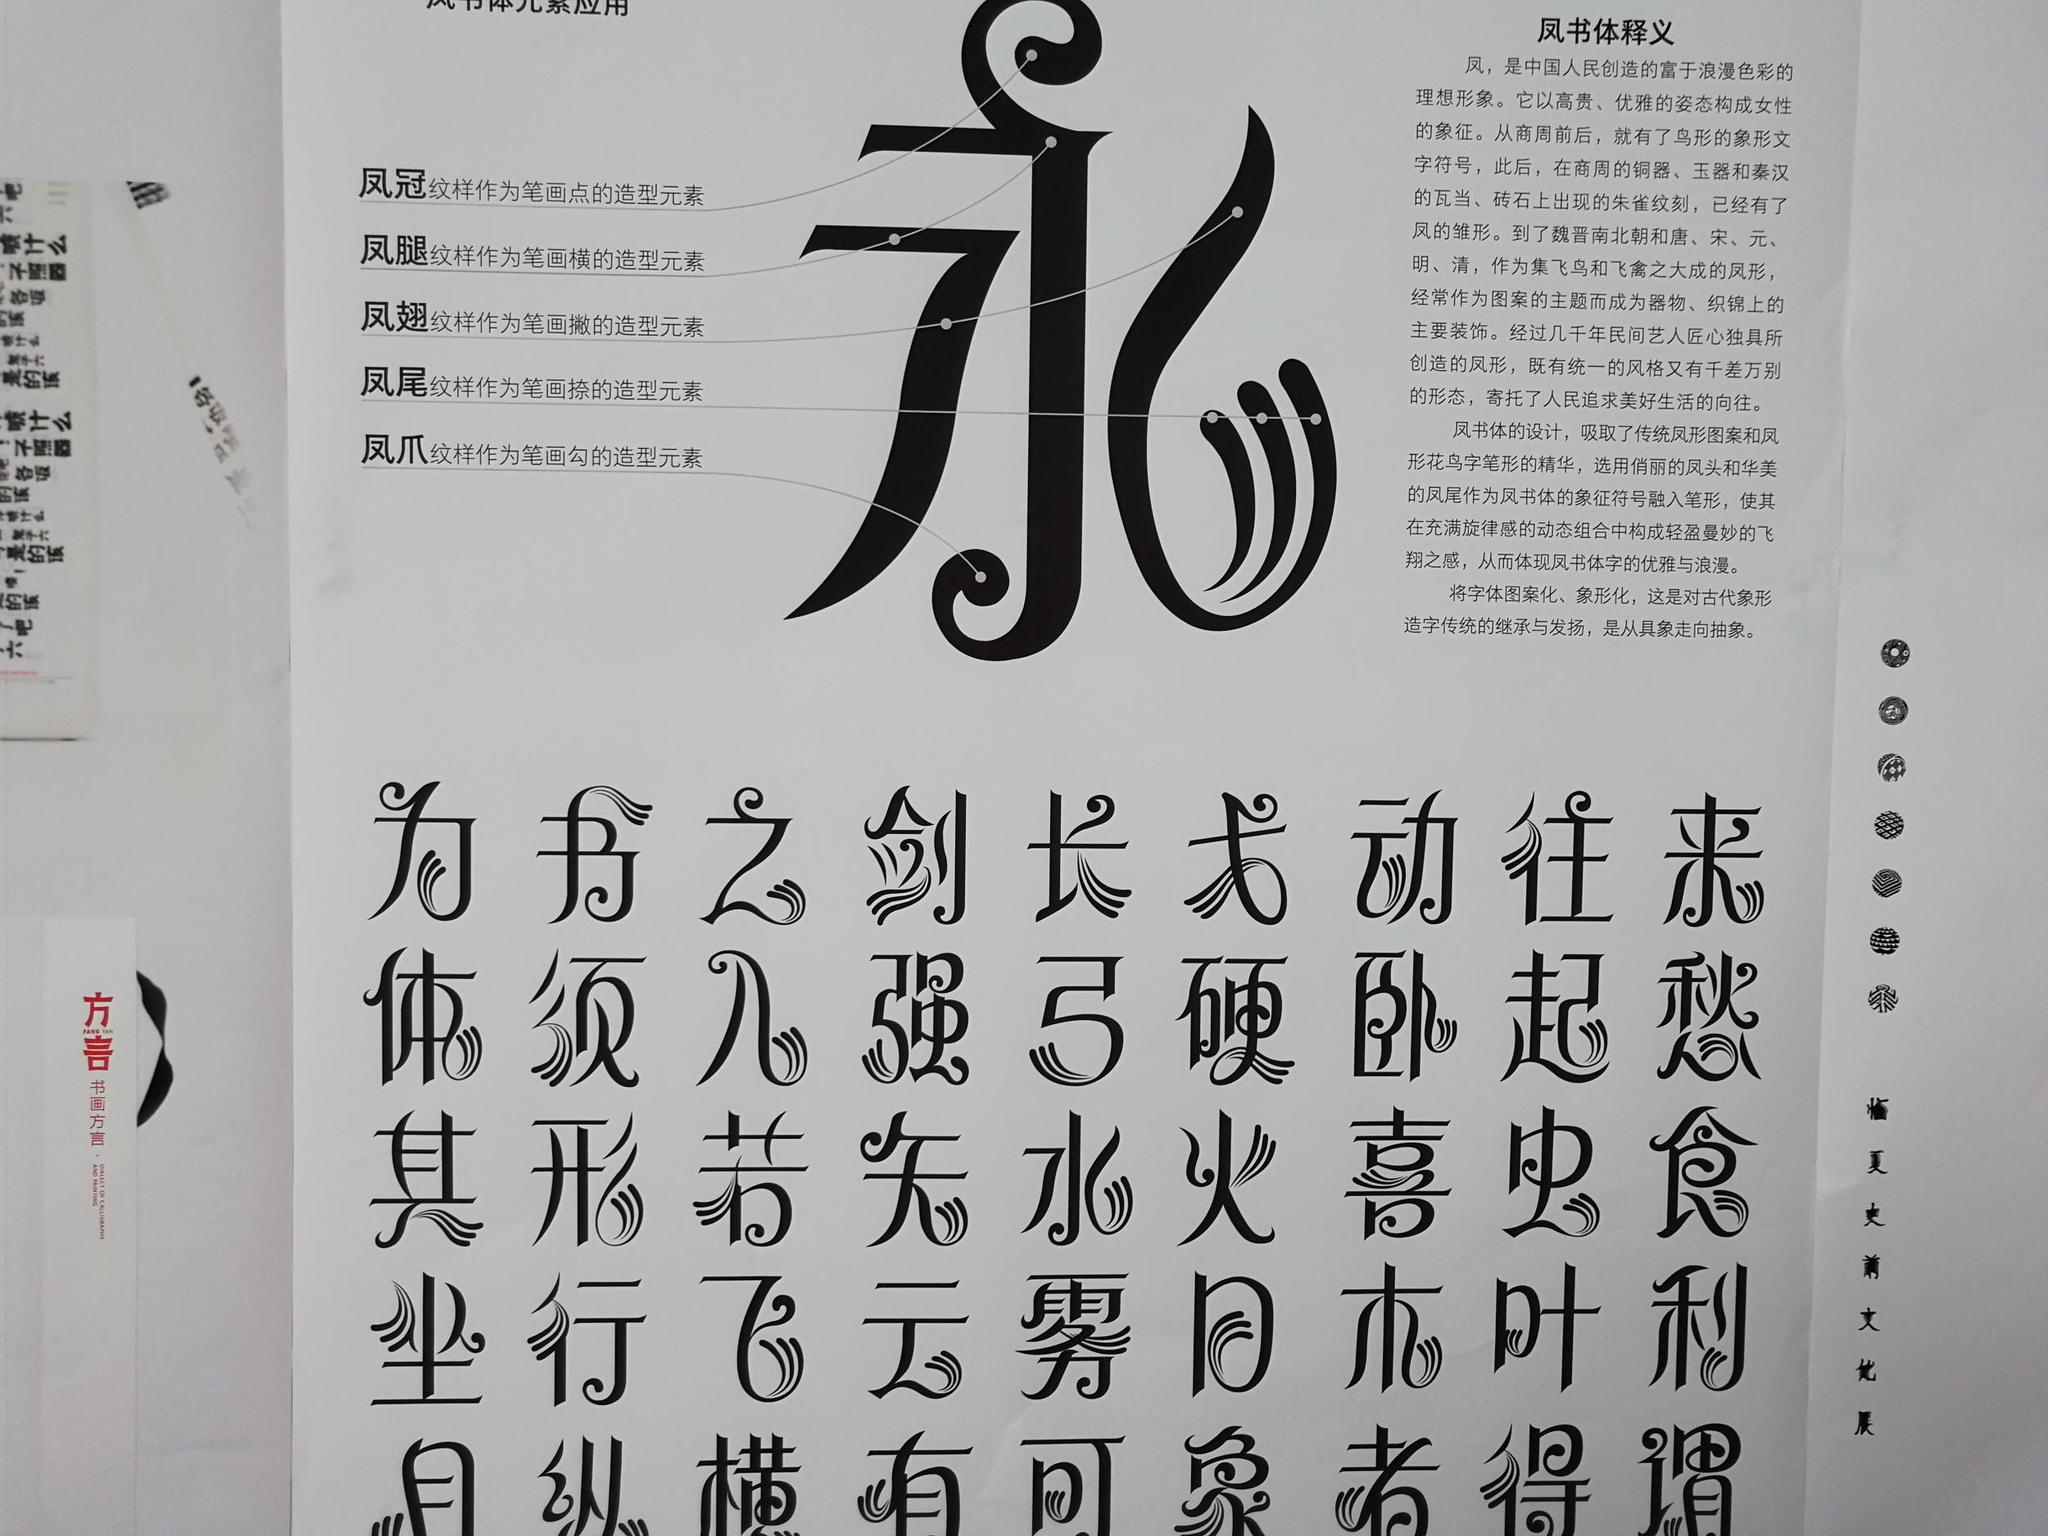 凤书体元素应用
凤冠纹样作为笔画点的造型元素
凤腿纹样作为笔画横的造型元素
凤翅纹样作为笔画撇的造型元素
凤尾纹样作为笔画捺的造型元素
凤爪纹样作为笔画勾的造型元素
永
凤书体释义
凤，是中国人民创造的富于浪漫色彩的
理想形象。它以高贵、优雅的姿态构成女性
的象征。从商周前后，就有了鸟形的象形文
字符号，此后，在商周的铜器、玉器和秦汉
的瓦当、砖石上出现的朱雀纹刻，已经有了
凤的雏形。到了魏晋南北朝和唐、宋、元、
明、清，作为集飞鸟和飞禽之大成的凤形，
经常作为图案的主题而成为器物、织锦上的
主要装饰。经过几千年民间艺人匠心独具所
创造的凤形，既有统一的风格又有千差万别
的形态，寄托了人民追求美好生活的向往。
凤书体的设计，吸取了传统凤形图案和凤
形花鸟字笔形的精华，选用俏丽的凤头和华美
的凤尾作为凤书体的象征符号融入笔形，使其
在充满旋律感的动态组合中构成轻盈曼妙的飞
翔之感，从而体现凤书体字的优雅与浪漫。
将字体图案化、象形化，这是对古代象形
造字传统的继承与发扬，是从具象走向抽象。
为书之剑长弋动往来
体须入强弓硬卧起愁
其形若矢水火喜虫食
坐行飞云雾日木叶利
月纵横有可象者得谓
临夏史前文化展
方言
FANG YAN
书画方言·
DIALECT OF CALLIGRAPHY
AND PAINTING